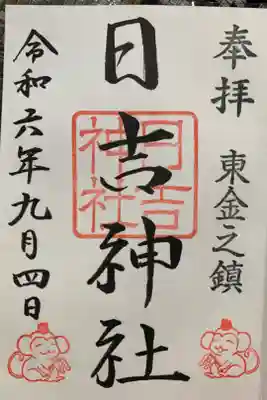 奉拝 東金之鎮
日吉神社
日吉神社
令和六年九月四日